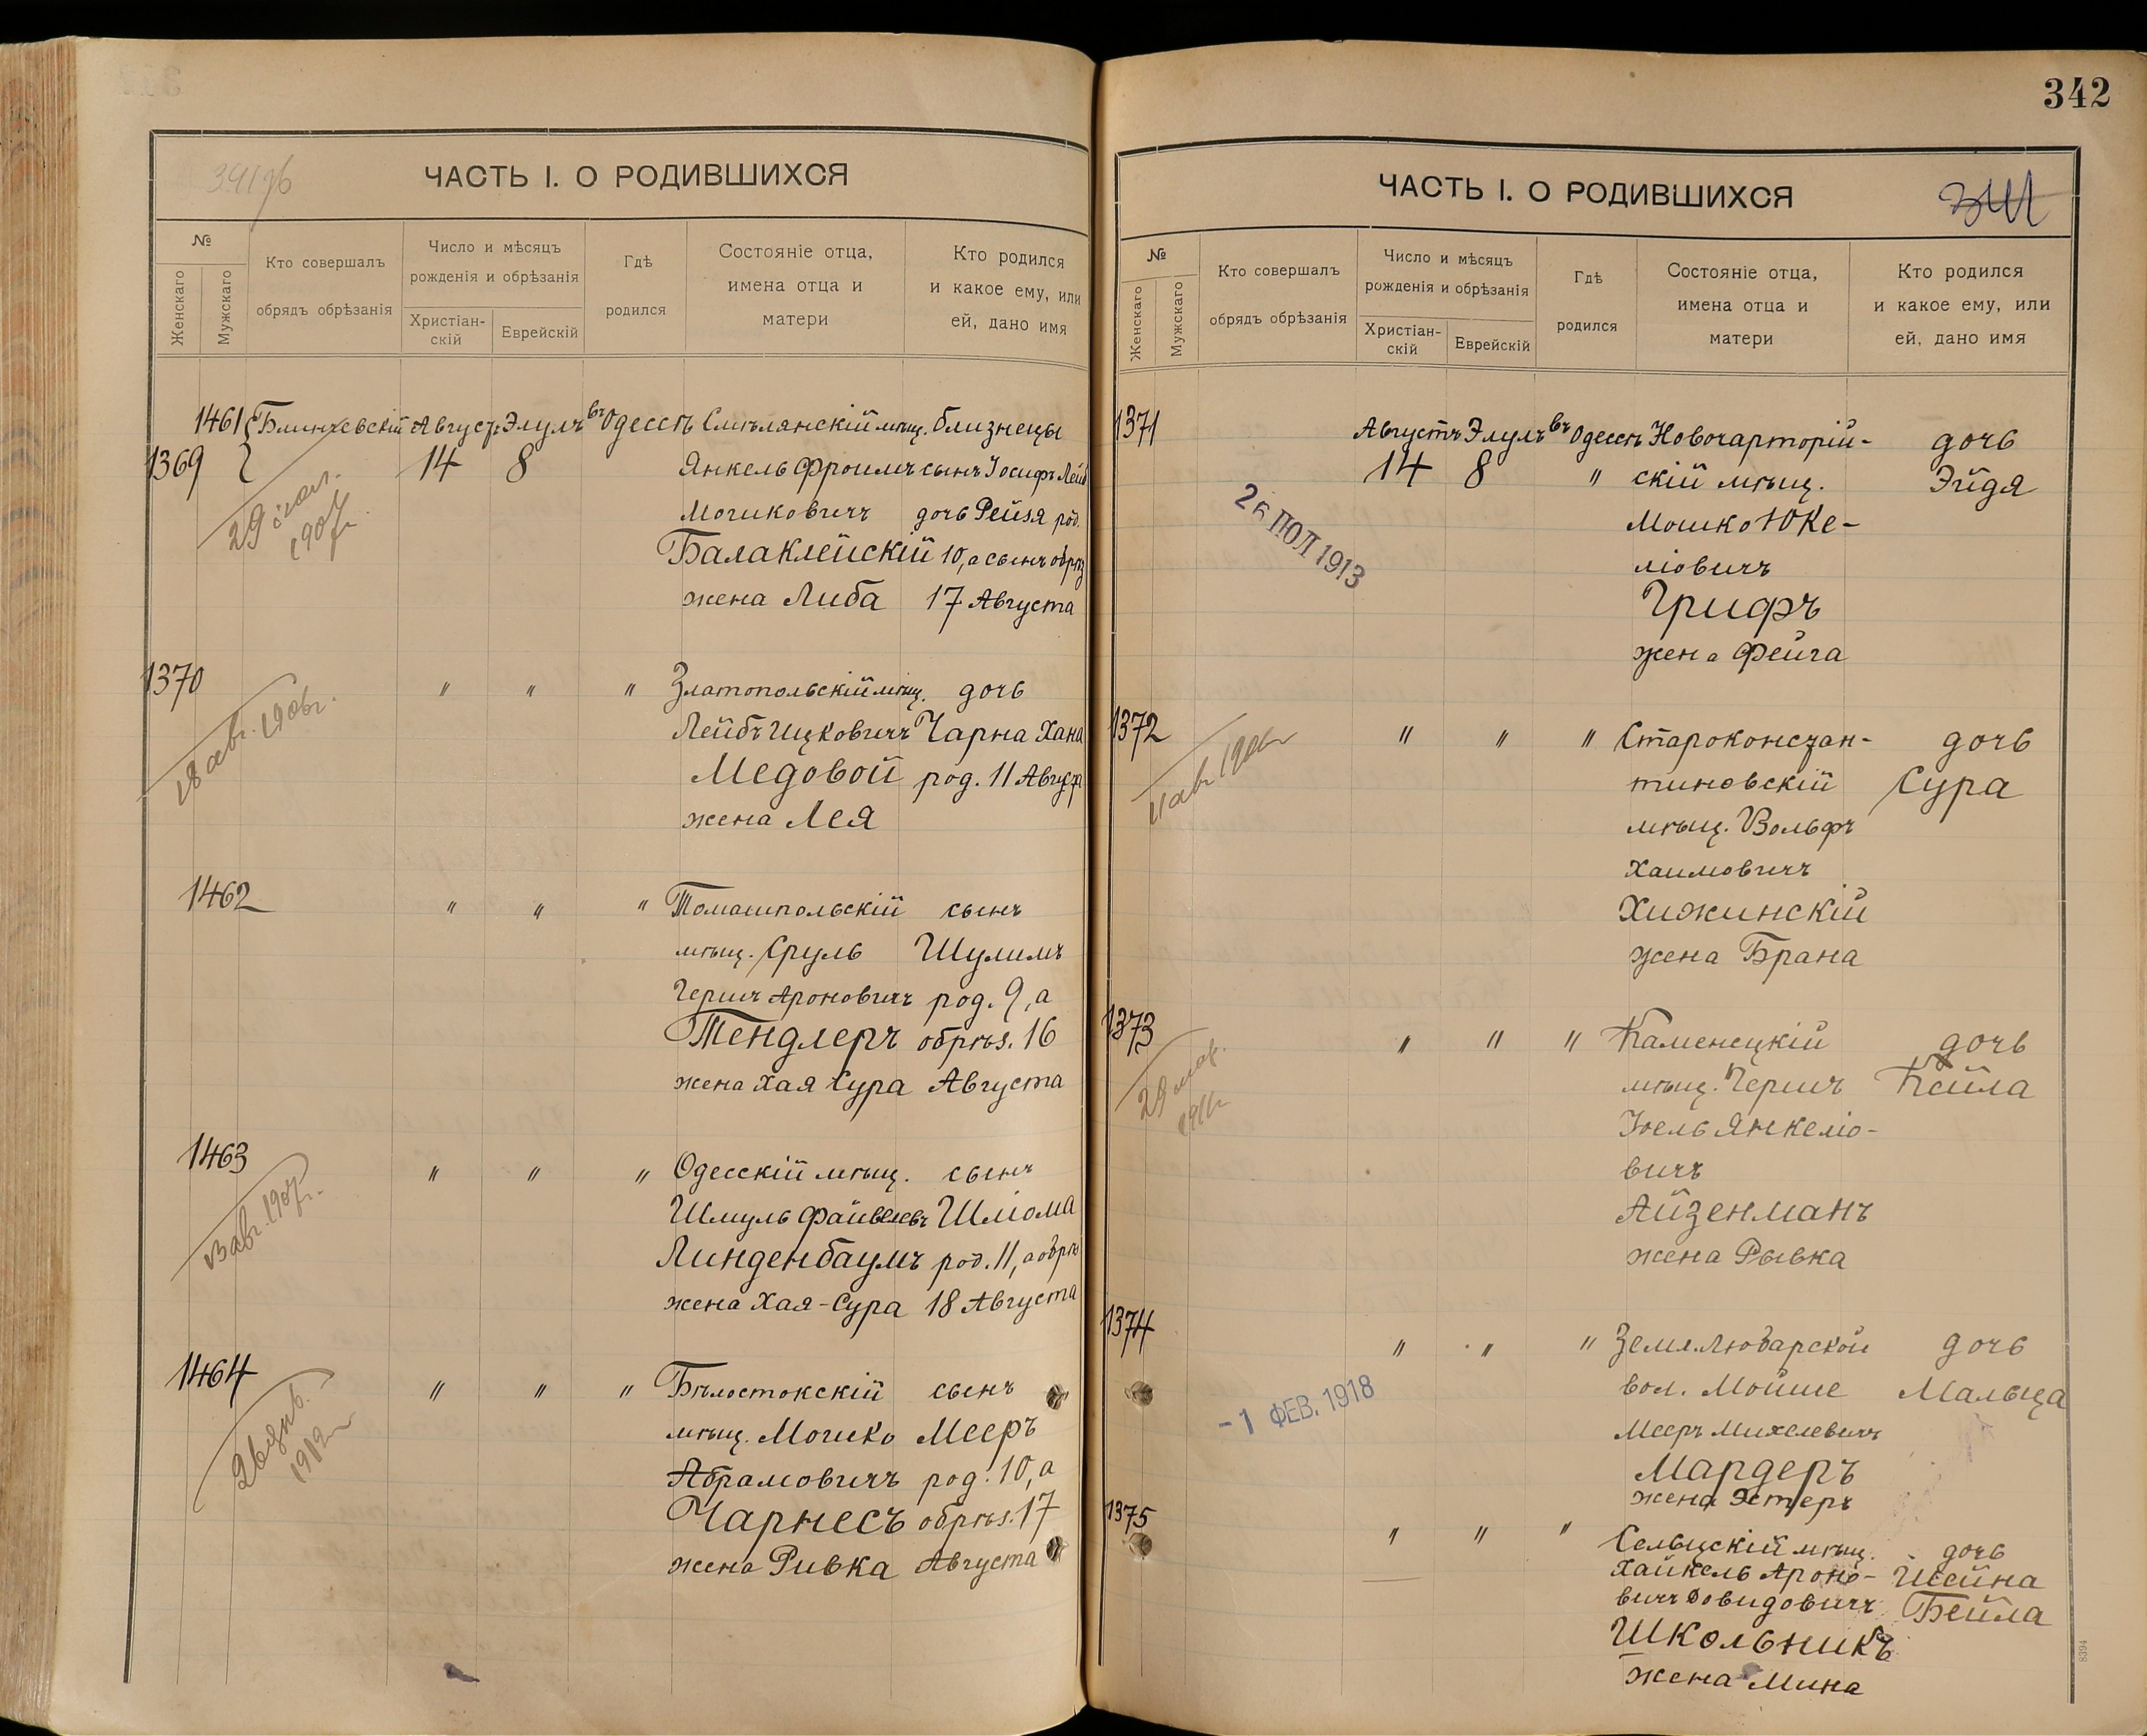 341 об
ЧАСТЬ I. О РОДИВШИХСЯ
№
Женскаго
Мужскаго
Кто совершалъ
обрядъ обрѣзанія
Число и мѣсяцъ
рожденія и обрѣзанія
Христіан-
скій
Еврейскій
Гдѣ
родился
Состояніе отца,
имена отца и
матери
Кто родился
и какое ему, или
ей, дано имя
1461 Августъ Элулъ въ Одессѣ Смѣлянскій мѣщ. близнецы
1369 14 8 Янкель Фроимъ сынъ Іосифъ Лейб
Мошковичъ дочь Рейзя род.
Балаклейскій 10, а сынъ обрѣз
жена Либа 17 Августа
1907 г.
1370 " " " Златопольскій мѣщ. дочь
Лейбъ Ицковичъ Чарна Хана
Медовой род. 11 Август
жена Лея
18 авг. 1906 г.
1462 " " " Томашпольскій сынъ
мѣщ. Сруль Шулимъ
Гершъ Ароновичъ род. 9, а
Тендлеръ обрѣз. 16
жена Хая Сура Августа
1463 " " " Одесскій мѣщ. сынъ
Шмуль Файвелевъ Шліома
Линденбаумъ род. 11, а обрѣз
жена Хая-Сура 18 Августа
авг. 1907 г.
1464 " " " Бѣлостокскій сынъ
мѣщ. Мошко Мееръ
Абрамовичъ род. 10, а
Чарнесъ обрѣз. 17
жена Ривка Августа
342
ЧАСТЬ I. О РОДИВШИХСЯ
341
№
Женскаго
Мужскаго
Кто совершалъ
обрядъ обрѣзанія
Число и мѣсяцъ
рожденія и обрѣзанія
Христіан-
скій
Еврейскій
Гдѣ
родился
Состояніе отца,
имена отца и
матери
Кто родился
и какое ему, или
ей, дано имя
1371 Августъ Элулъ въ Одессѣ Новочарторій- дочь
14 8 " скій мѣщ. Эйдя
Мошко Юке-
ліовичъ
Грифъ
жена Фейга
1913
1372 " " " Староконстан- дочь
тиновскій Сура
мѣщ. Вольфъ
Хаимовичъ
Хижинскій
жена Брана
1373 " " " Каменецкій дочь
мѣщ. Гершъ Кейла
Іоель Янкеліо-
вичъ
Айзенманъ
жена Рывка
1374 " " " Земл. Любарской дочь
вол. Мойше Мальца
Мееръ Михелевичъ
Мардеръ
жена Эстеръ
-1 ФЕВ. 1918
1375 " " " Сельцскій мѣщ. дочь
Хайкель Ароно- Шейна
вичъ Довидовичъ Бейла
Школьникъ
жена Мина
8394